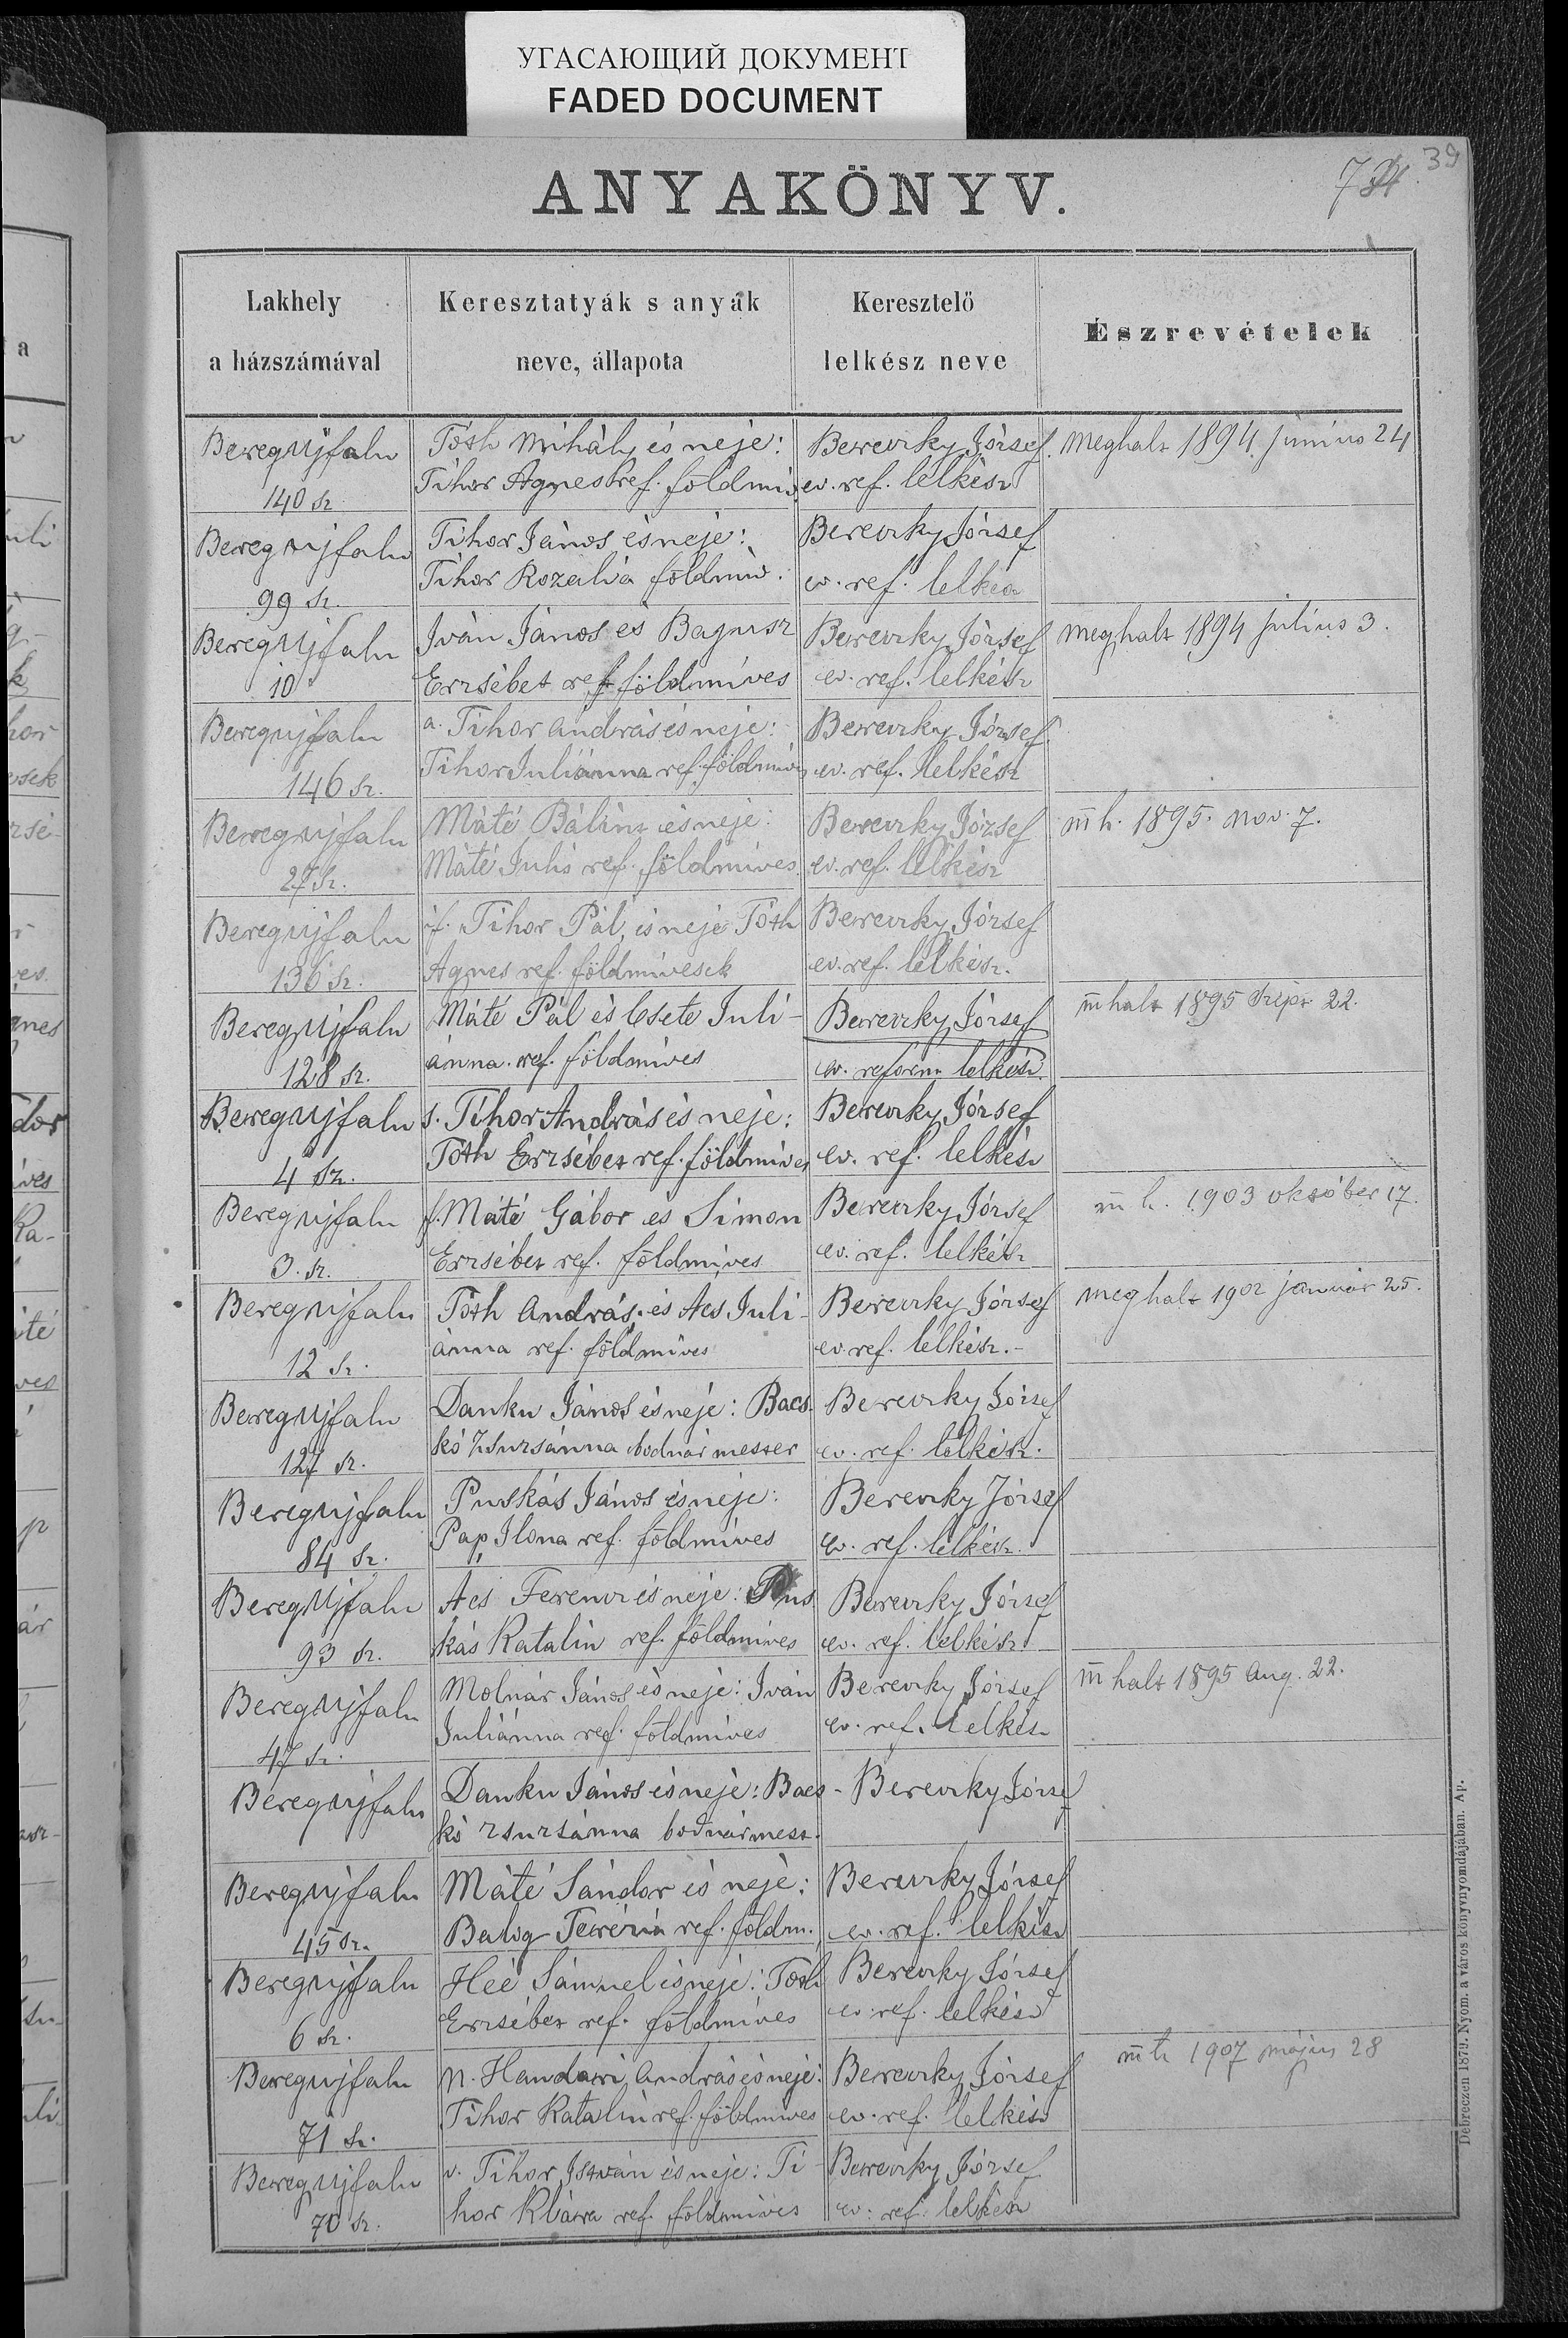 УГАСАЮЩИЙ ДОКУМЕНТ
FADED DOCUMENT
39
ANYAKÖNYV.
Lakhely
a házszámával
Keresztatyák s anyák
neve, állapota
Keresztelő
lelkész neve
Észrevételek
Beregujfalu
140 sz
Tóth Mihály és neje:
Tihor Agnes ref. földmiv.
Bereczky József
ev. ref. lelkész
meghalt 1894. junius 24
Beregujfalu
99 sz.
Tihor János és neje:
Tihor Rozalia földmiv.
Bereczky József
ev. ref. lelkész
Beregujfalu
10
Iván János és Bagusz
Erzsébet ref földmíves
Bereczky József
ev. ref. lelkész
meghalt 1894 julius 3.
Beregujfalu
146 sz.
a. Tihor András és neje:
Tihor Juliánna ref. földmives
Bereczky József
ev. ref. lelkész
Beregujfalu
27 sz.
Máté Bálint és neje:
Máté Julis ref. földmíves
Bereczky József
ev. ref. lelkész
m h. 1895. nov. 7.
Beregujfalu
136 sz.
if. Tihor Pál és neje Tóth
Agnes ref. földmívesek
Bereczky József
ev. ref. lelkész.
Beregujfalu
128 sz.
Máté Pál és Csete Juli-
ánna ref. földmíves
Bereczky József
ev. reform lelkész.
m halt 1895 Szept 22.
Beregujfalu
4 sz.
s. Tihor András és neje:
Tóth Erzsébet ref. földmíves
Bereczky József
ev. ref. lelkész
Beregujfalu
3. sz.
f. Máté Gábor és Simon
Erzsébet ref. földmíves
Bereczky József
ev. ref. lelkész
m h. 1903 október 17.
Beregujfalu
12 sz.
Tóth András és Acs Juli-
ánna ref. földmíves
Bereczky József
ev. ref. lelkész.-
meghalt 1902 január 25.
Beregujfalu
127 sz.
Danku János és neje: Bacs-
kó Zsuzsánna bodnár mester
Bereczky József
ev. ref. lelkész.
Beregujfalu
84 sz.
Puskás János és neje:
Pap Ilona ref. földmíves
Bereczky József
ev. ref. lelkész.
Beregujfalu
93 sz.
Acs Ferencz és neje: Pus
kás Katalin ref. földmíves
Bereczky József
ev. ref. lelkész
Beregujfalu
47 sz.
Molnár János és neje: Iván
Juliánna ref. földmíves
Bereczky József
ev. ref. lelkész
m halt 1895 Aug. 22.
Beregujfalu
Danku János és neje: Bacs-
kó Zsuzsánna bodnármest.
Bereczky József
Beregujfalu
45 sz.
Máté Sándor és neje:
Balog Terézia ref. földm.
Bereczky József
ev. ref. lelkész
Beregujfalu
6 sz.
Héé Sámuel és neje: Tóth
Erzsébet ref. földmíves
Bereczky József
ev. ref. lelkész
Beregujfalu
71 sz.
n. Handari András és neje:
Tihor Katalin ref. földmives
Bereczky József
ev. ref. lelkész
m h 1907 május 28
Beregujfalu
70 sz.
v. Tihor István és neje: Ti-
hor Klára ref. földmíves
Bereczky József
ev. ref. lelkész
Debreczen 1879. Nyom. a város könyvnyomdájában. Ap.